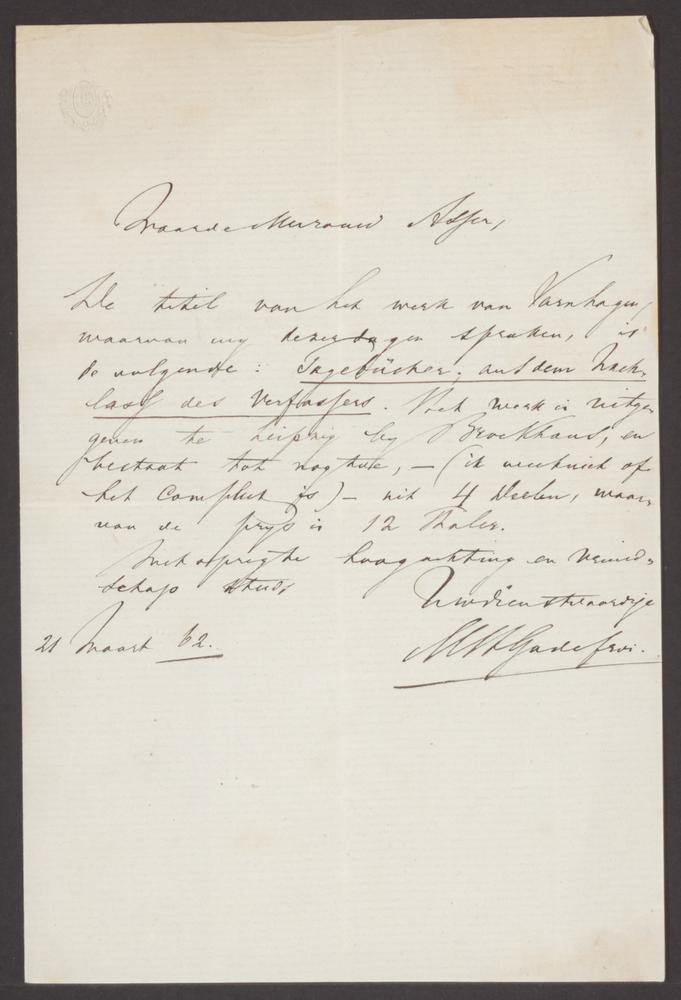 Waarde Mevrouw Asser,
De titel van het werk van Varnhagen,
waarvan wij dezer dagen spraken, is
de volgende: Tagebücher, aus dem Nach-
lass des Verfassers. Het werk is uitge-
geven te Leipzig bij Brockhaus, en
bestaat tot nog toe, – (ik weet niet of
het compleet is) – uit 4 deelen, waar-
van de prijs is 12 Thaler.
Met opregte hoogachting en vriend-
schap steeds
Uw dienstvaardige
MHGodefroi.
21 Maart 62.